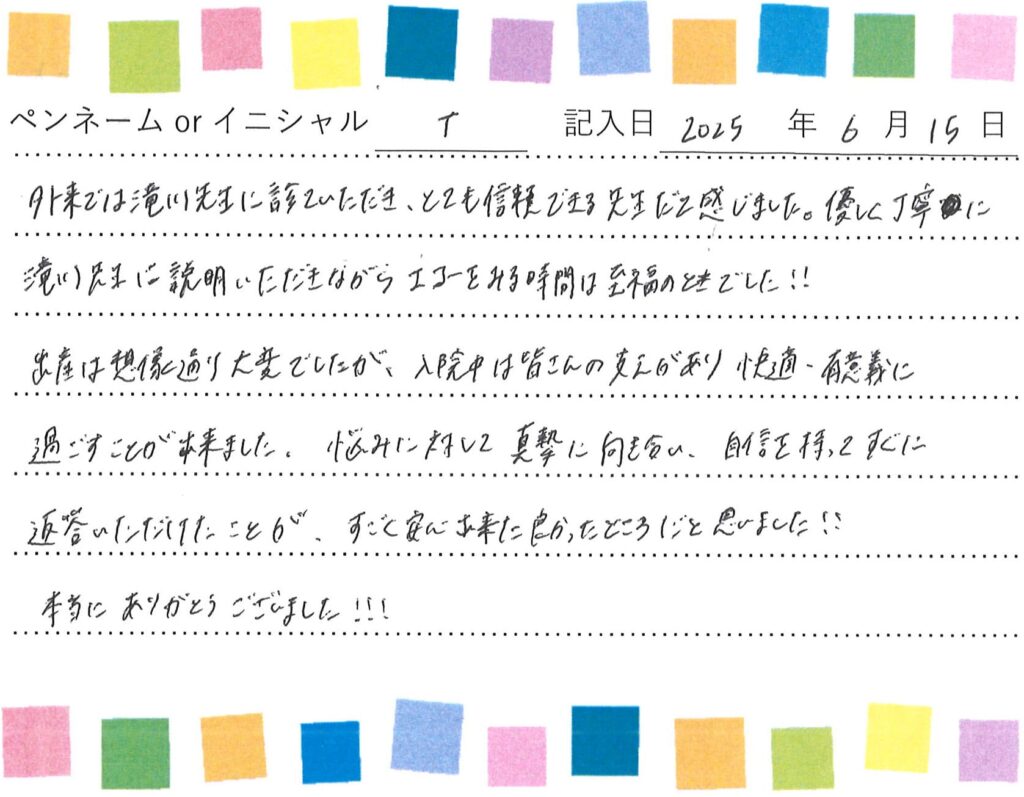 ペンネーム or イニシャル T 記入日 2025 年 6 月 15 日
外来では滝川先生に診ていただき、とても信頼できる先生だと感じました。優しく丁寧に
滝川先生に説明いただきながらエコーをみる時間は至福のときでした!!
出産は想像通り大変でしたが、入院中は皆さんの支えがあり快適・有意義に
過ごすことが出来ました。悩みに対して真摯に向き合い、自信を持ってすぐに
返答いただけたことが、すごく安心出来た良かったところだと思いました!!
本当にありがとうございました!!!